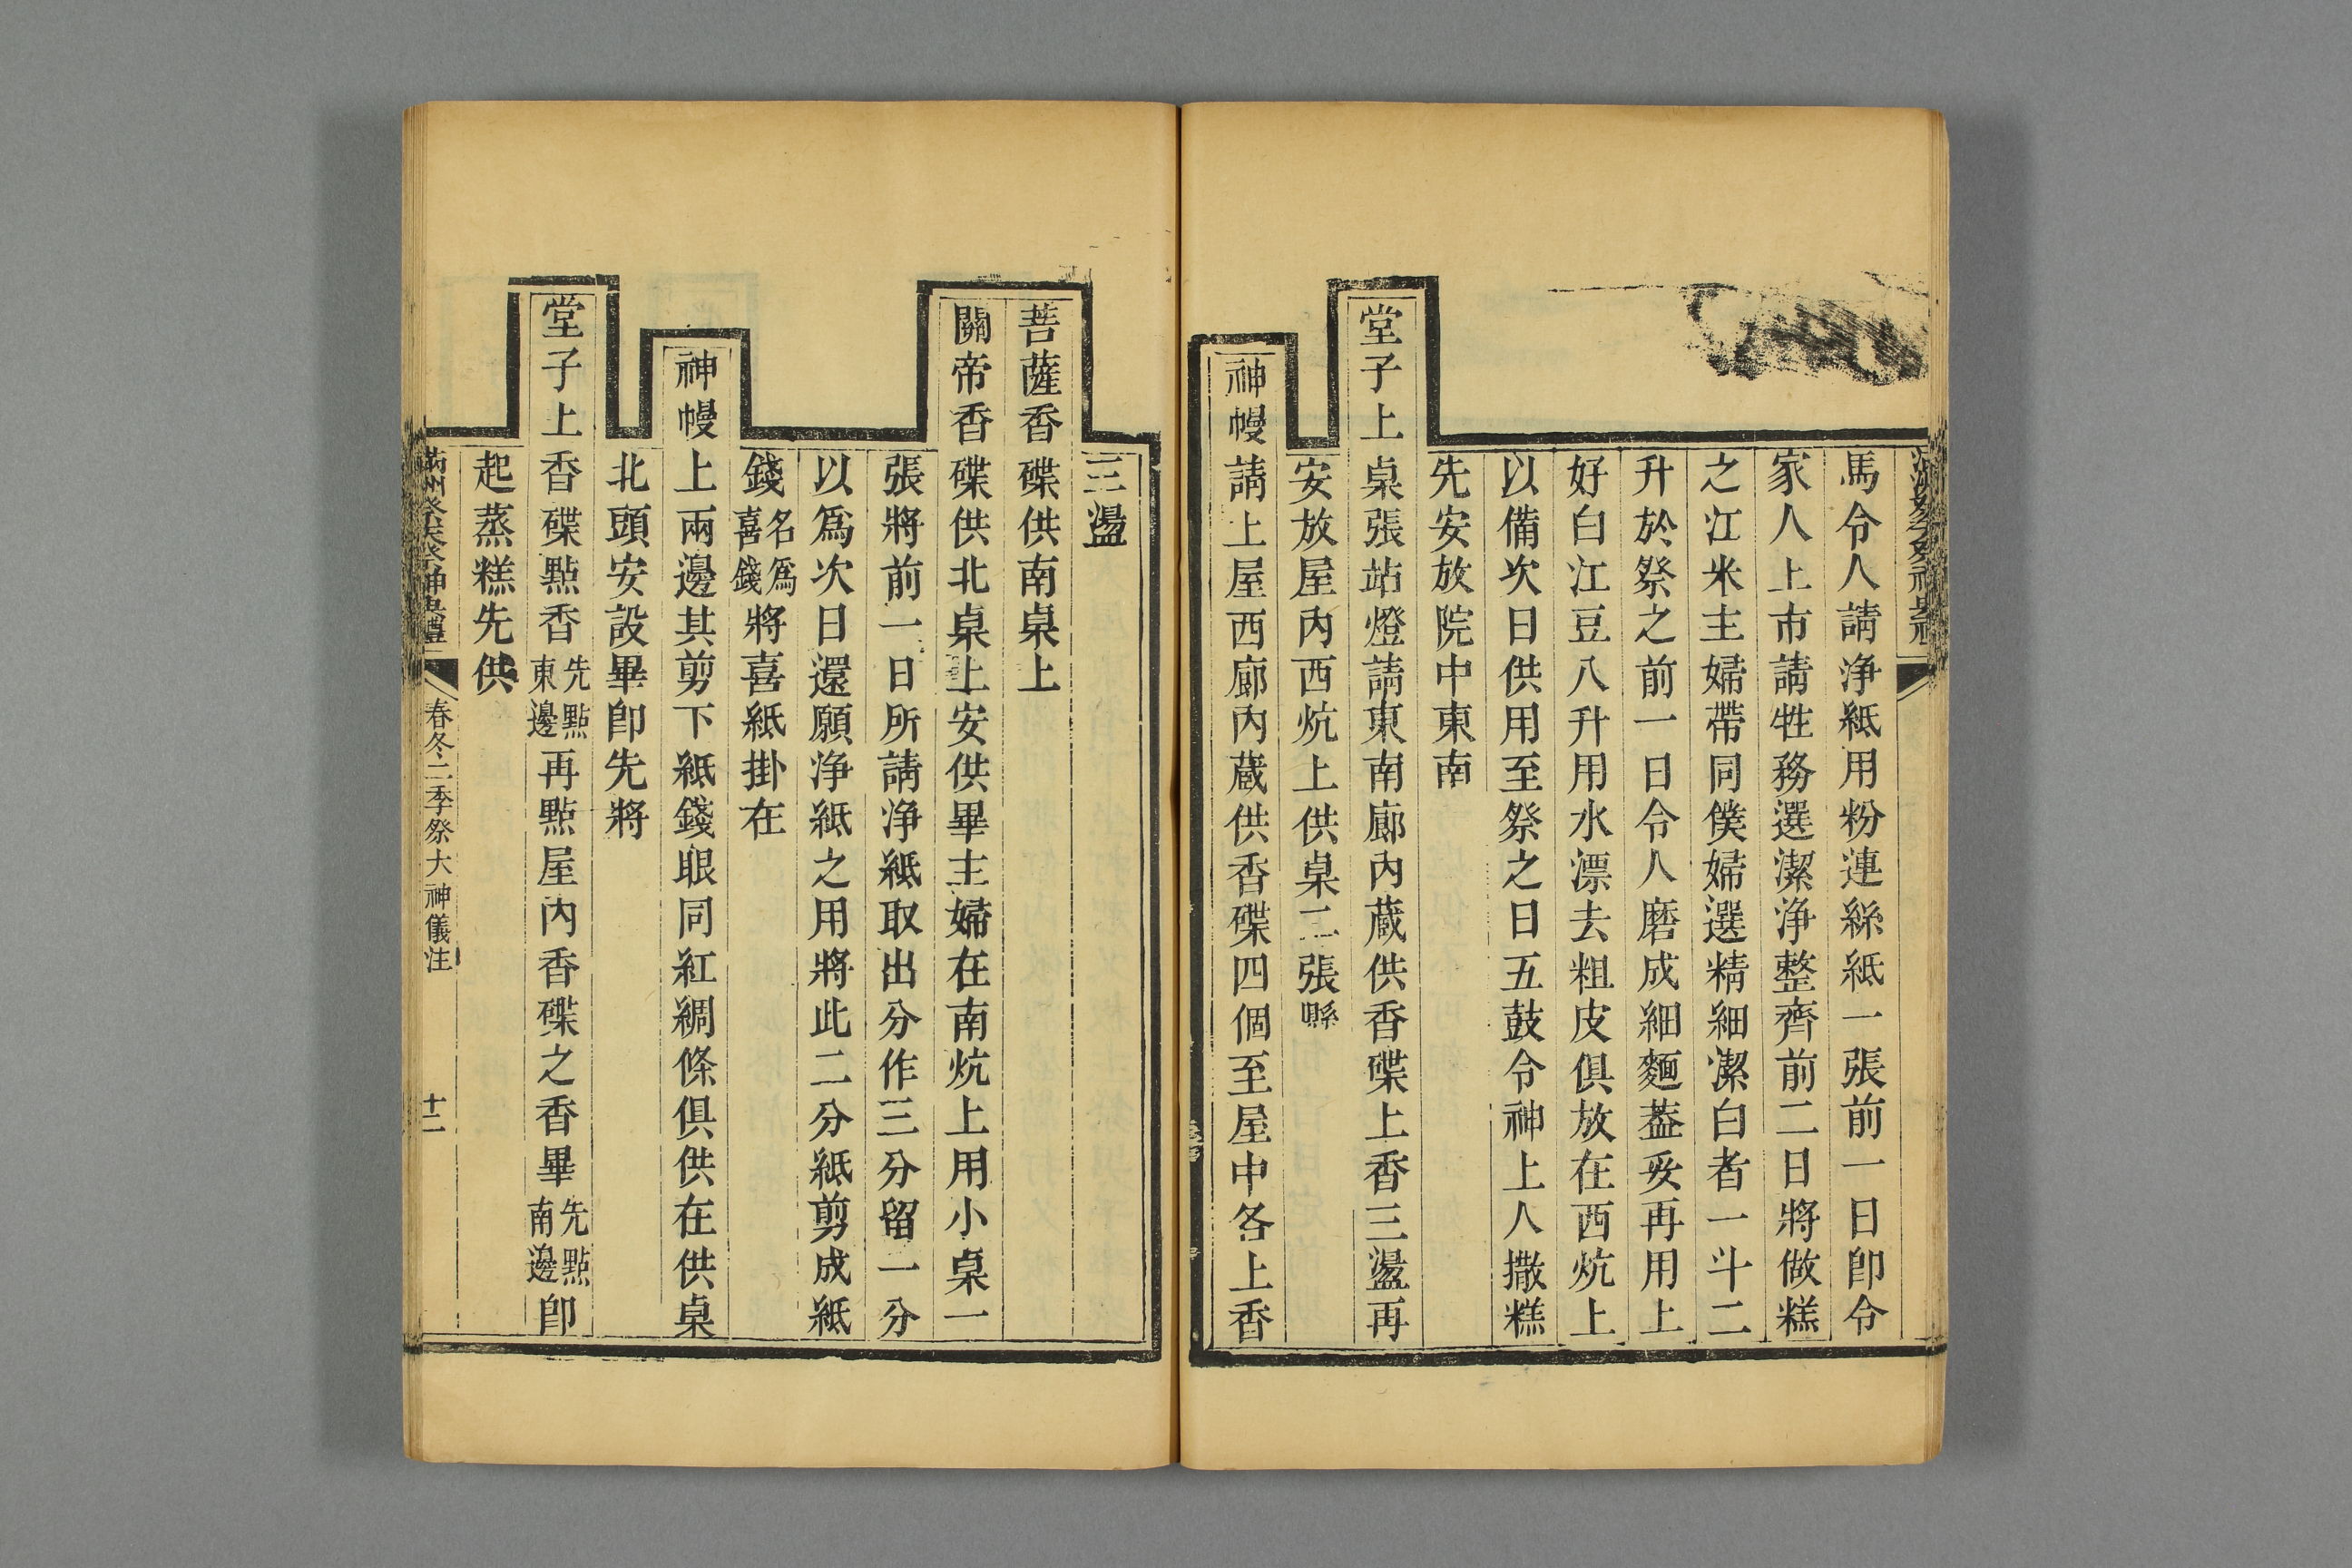 馬令人請淨紙用粉連絲紙一張前一日卽令
家人上市請牲務選潔淨整齊前二日將做糕
之江米主婦帶同僕婦選精細潔白者一斗二
升於祭之前一日令人磨成細麵葢妥再用上
好白江豆八升用水漂去粗皮俱放在西炕上
以備次日供用至祭之日五鼓令神上人撒糕
先安放院中東南
堂子上桌張站燈請東南廊內蔵供香碟上香三盪再
安放屋內西炕上供桌二張縣
神幔請上屋西廊內蔵供香碟四個至屋中各上香
三盪
菩薩香碟供南桌上
關帝香碟供北桌上安供畢主婦在南炕上用小桌一
張將前一日所請淨紙取出分作三分留一分
以爲次日還願淨紙之用將此二分紙剪成紙
錢名爲喜錢將喜紙掛在
神幔上兩邊其剪下紙錢眼同紅綢條俱供在供桌
北頭安設畢卽先將
堂子上香碟點香先點東邊再點屋內香碟之香畢先點南邊卽
起蒸糕先供
滿洲祭天祭神典禮
春冬二季祭大神儀注
十二